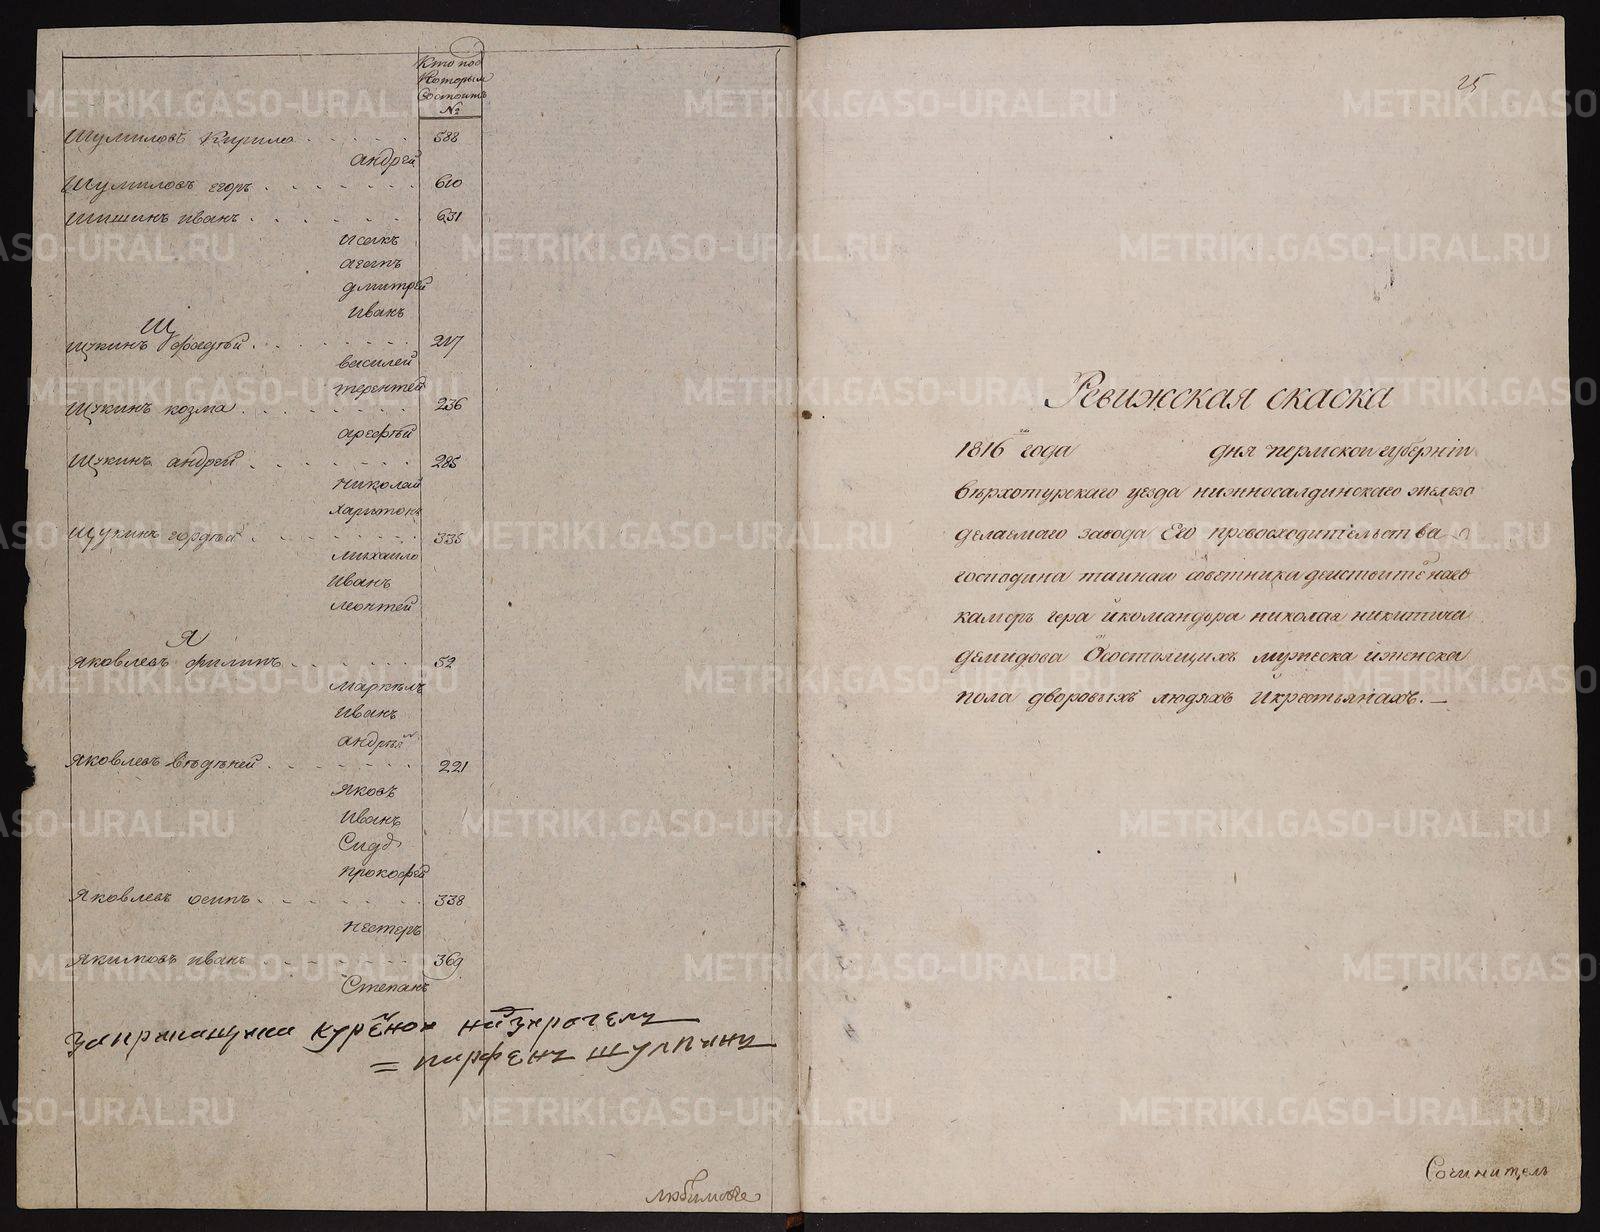 Кто под
Которым
Состоитъ
№
Шумиловъ Кирило 588
андрей
Шумиловъ егоръ 610
Шишинъ иванъ 631
Исакъ
агапъ
дмитрей
Иванъ
Щ
Щукинъ фадѣй 217
василей
терентей
Щукинъ козма 236
арефѣй
Щукинъ андрей 285
Николай
харитонъ
Щукинъ гордѣй 335
михаило
Иванъ
леонтей
Я
Яковлевъ филипъ 52
Маркелъ
Иванъ
андрѣй
Яковлевъ евдѣней 221
Яковъ
Иванъ
Сидъ
прокофей
Яковлевъ осипъ 338
нестеръ
Якимовъ иванъ 369
Степанъ
курѣной
= парфенъ шулпинъ
любимовъ
25
Ревижская скаска
1816 го года дня пермской губерніи
верхотурскаго уезда нижносалдинскаго железо
делаемого завода Его превосходительства
господина тайнаго советника действитенаго
камергера и командора николая никитича
демидова О состоящихъ мужеска и женска
пола дворовыхъ людяхъ и крестьянахъ. —
Сочинитель
METRIKI.GASO-URAL.RU